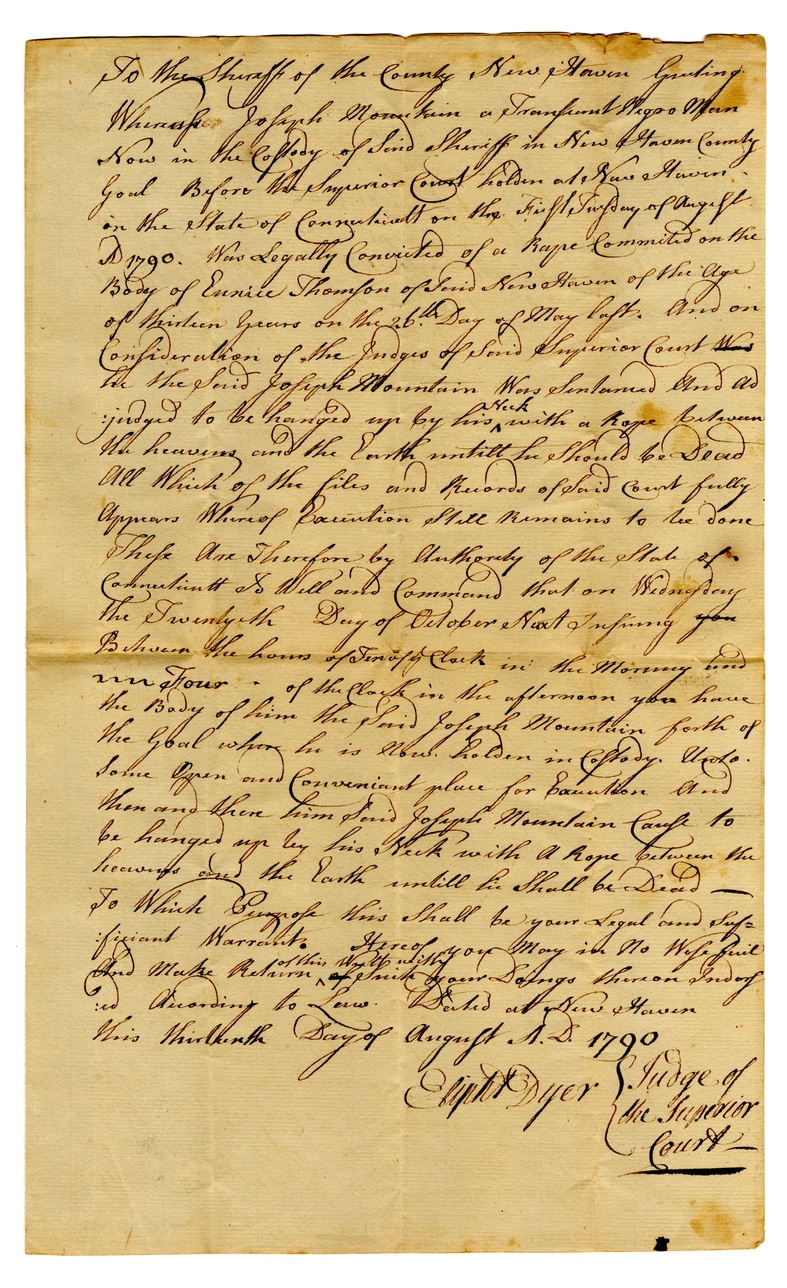 To the Sheriff of the County New Haven Greeting
Whereas Joseph Mountain a Transient Negro Man
Now in the Costody of Said Sheriff in New Haven County
Goal Before the Superior Court holden at New Haven
in the State of Connecticutt on the First Tusday of August
AD 1790. Was Legally Convicted of a Rape Commited on the
Body of Eunice Thomson of Said New Haven of the Age
of thirteen Years on the 26th Day of May last. And on
Consideration of the Judges of Said Superior Court Was
he the Said Joseph Mountain Was Sentanced And Ad
:judged to be hanged up by his Neck with a Rope between
the heavens and the Earth untill he Should be Dead
All Which of the files and Records of Said Court fully
Appears Whereof Execution Still Remains to be done
These Are Therefore by Authority of the State of
Connecticutt To Will and Command that on Wednesday
the Twentyeth Day of October Next Insuing you
Between the hours of Ten of ye Clock in the Morning and
Four of the Clock in the afternoon you have
the Body of him the Said Joseph Mountain forth of
the Goal where he is Now holden in Costody. Unto
Some Open and Conveniant place for Execution And
then and there him Said Joseph Mountain Cause to
be hanged up by his Neck with A Rope between the
heavens and the Earth untill he Shall be Dead —
To Which Purpose this Shall be your Legal and Suf=
:ficiant Warrant. Hereof you May in No Wise fail
And Make Return of this Writt with of Such your Doings thereon Indors
:ed According to Law. Dated at New Haven
this thirteenth Day of August A.D. 1790
Elipht Dyer { Judge of
the Superior
Court